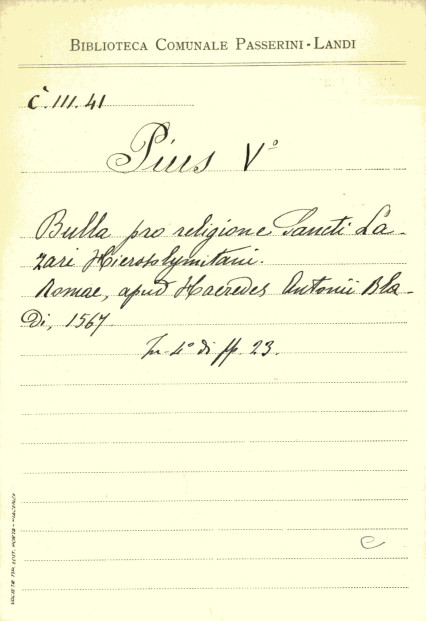 BIBLIOTECA COMUNALE PASSERINI-LANDI
C. III. 41
Pius Vº
Bulla pro religione Sancti La-
zari Hierosolymitani.
Romae, apud Haeredes Antonii Bla-
Di, 1567.
In-4º di pp. 23.
C